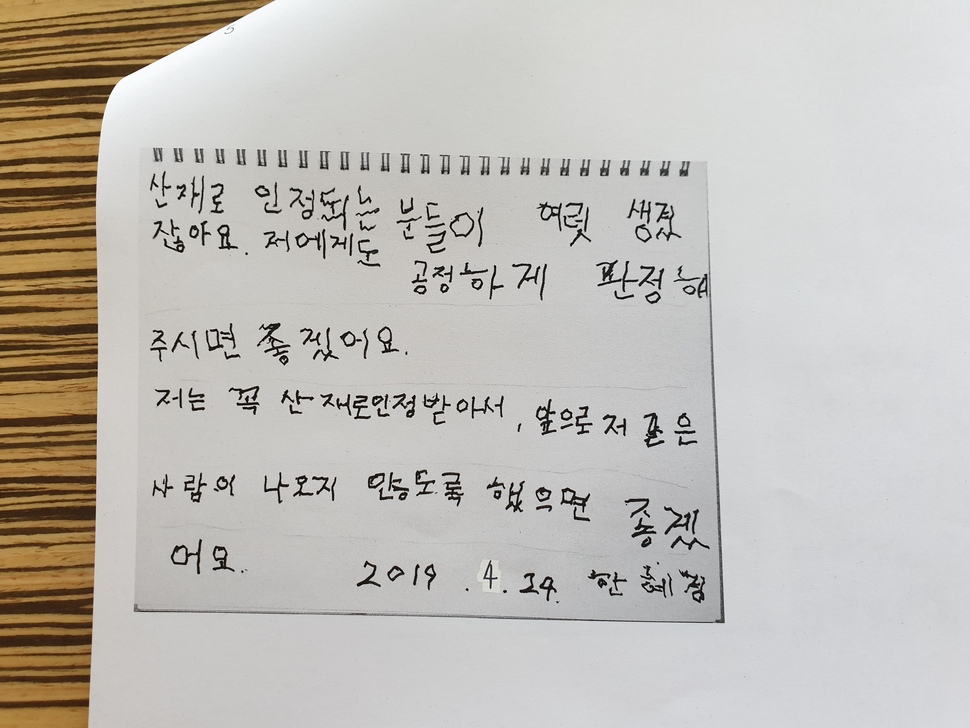 산재로 인정되는 분들이 여럿 생겼
잖아요. 저에게도
공정하게 판정해
주시면 좋겠어요.
저는 꼭 산재로인정받아서, 앞으로 저 같은
사람이 나오지 않도록 했으면 좋겠
어요. 2019.4.24. 한혜경